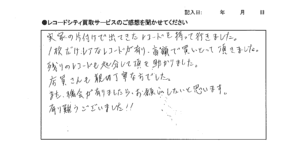 記入日: 年 月 日
●レコードシティ買取サービスのご感想を聞かせてください
実家の片付けで出てきたレコードを持って行きました。
1枚だけレアなレコードが有り、高額で買いとって頂きました。
残りのレコードも処分して頂き助かりました。
店員さんも親切丁寧な方でした。
また、機会が有りましたら、お願いしたいと思います。
有り難うございました!!